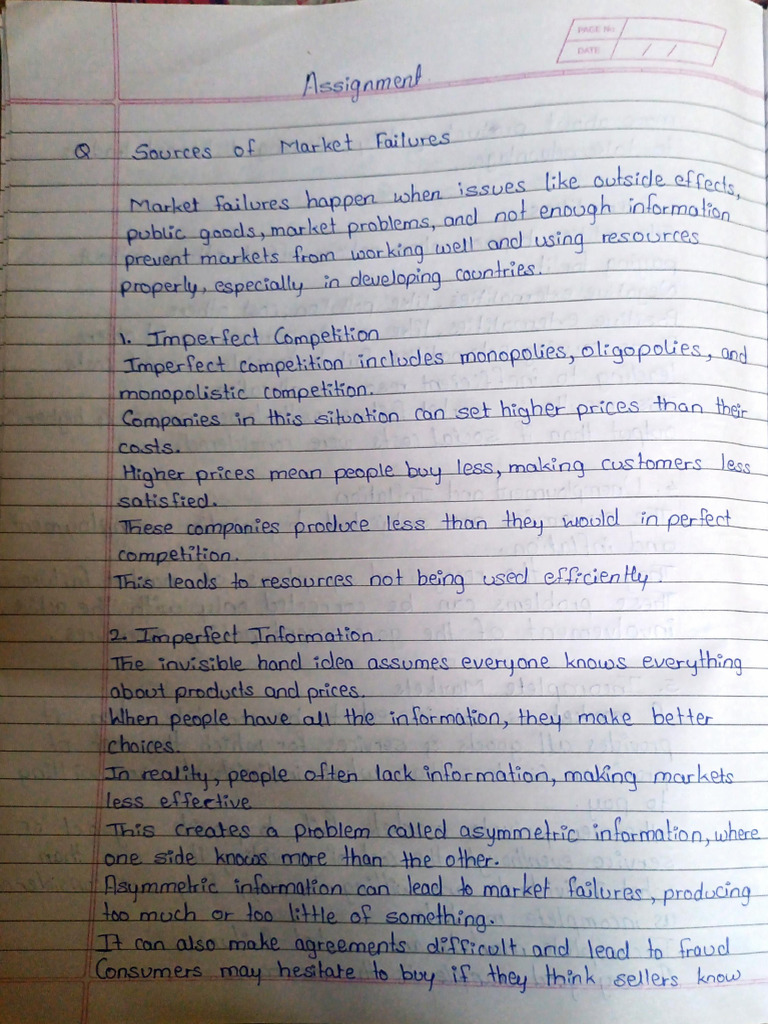 PAGE No.
DATE / /
Assignment
Q Sources of Market Failures
Market failures happen when issues like outside effects,
public goods, market problems, and not enough information
prevent markets from working well and using resources
properly, especially in developing countries.
1. Imperfect Competition
Imperfect competition includes monopolies, oligopolies, and
monopolistic competition.
Companies in this situation can set higher prices than their
costs.
Higher prices mean people buy less, making customers less
satisfied.
These companies produce less than they would in perfect
competition.
This leads to resources not being used efficiently.
2. Imperfect Information.
The invisible hand idea assumes everyone knows everything
about products and prices.
When people have all the information, they make better
choices.
In reality, people often lack information, making markets
less effective
This creates a problem called asymmetric information, where
one side knows more than the other.
Asymmetric information can lead to market failures, producing
too much or too little of something.
It can also make agreements difficult and lead to fraud
Consumers may hesitate to buy if they think sellers know